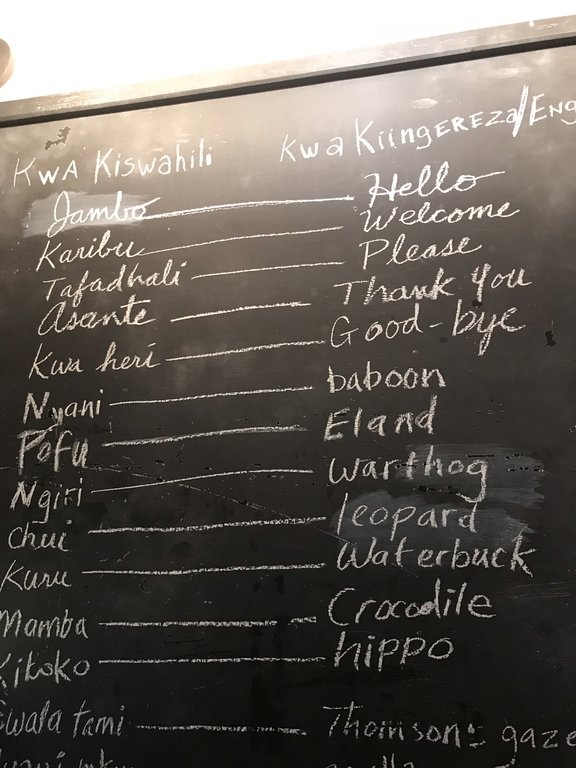 Kwa Kiswahili Kwa Kiingereza/Eng
Jambo Hello
Karibu Welcome
Tafadhali Please
Asante Thank You
Kwa heri Good-bye
Nyani baboon
Pofu Eland
Ngiri Warthog
Chui leopard
Kuru Waterbuck
Mamba Crocodile
Kiboko hippo
Swala tami Thomson's gaze